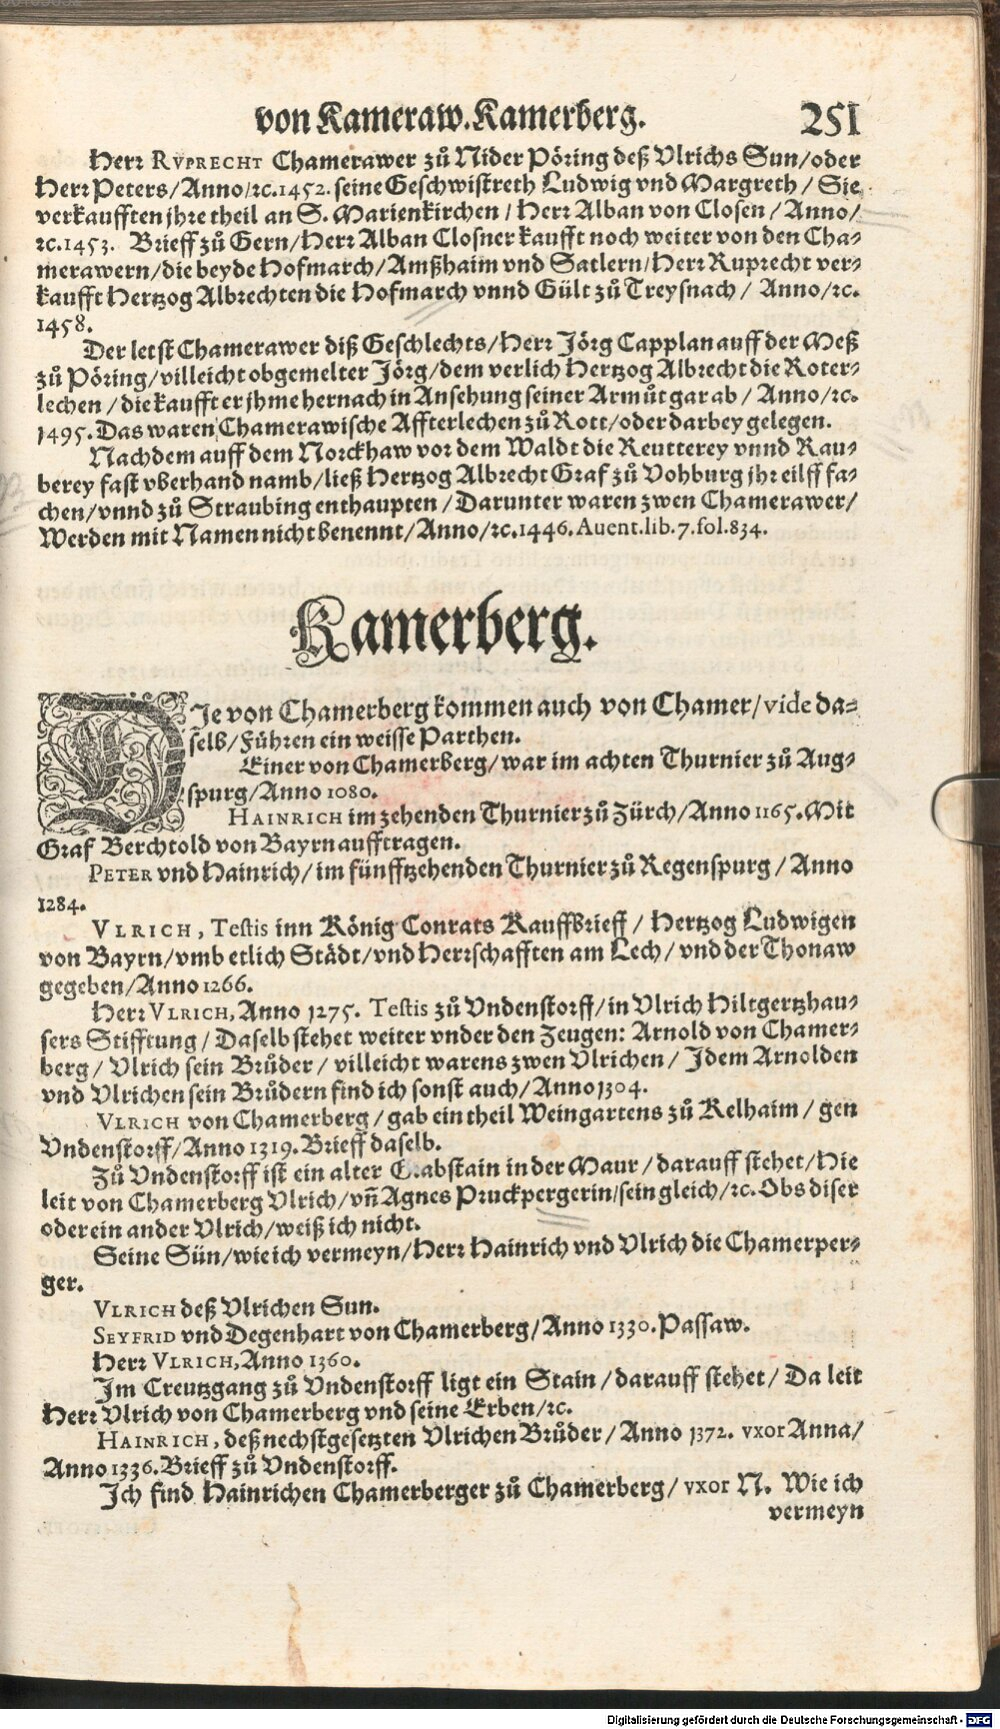 von Kameraw. Kamerberg. 251
Herr RVPRECHT Chamerawer zů Nider Pöring deß Vlrichs Sun/oder
Herr Peters/Anno/ꝛc.1452. seine Geschwistreth Ludwig vnd Margreth / Sie
verkaufften jhre theil an S. Marienkirchen / Herr Alban von Closen / Anno/
ꝛc.1453. Brieff zů Gern/Herr Alban Closner kaufft noch weiter von den Cha⸗
merawern/die beyde Hofmarch/Amßhaim vnd Satlern/Herr Ruprecht ver⸗
kaufft Hertzog Albrechten die Hofmarch vnnd Gült zů Treysnach / Anno/ꝛc.
1458.
Der letst Chamerawer diß Geschlechts/Herr Jörg Capplan auff der Meß
zů Pöring/villeicht obgemelter Jörg/dem verlich Hertzog Albrecht die Roter⸗
lechen / die kaufft er jhme hernach in Ansehung seiner Armůt gar ab / Anno/ꝛc.
1495. Das waren Chamerawische Affterlechen zů Rott/oder darbey gelegen.
Nachdem auff dem Norckhaw vor dem Waldt die Reutterey vnnd Rau⸗
berey fast vberhand namb/ließ Hertzog Albrecht Graf zů Vohburg jhr eilff fa⸗
chen/vnnd zů Straubing enthaupten / Darunter waren zwen Chamerawer/
Werden mit Namen nicht benennt/Anno/ꝛc.1446. Auent.lib.7.fol.834.
Kamerberg.
DJe von Chamerberg kommen auch von Chamer/vide da⸗
selb/Führen ein weisse Parthen.
Einer von Chamerberg/war im achten Thurnier zů Aug⸗
spurg/Anno 1080.
HAINRICH im zehenden Thurnier zů Zürch/Anno 1165. Mit
Graf Berchtold von Bayrn aufftragen.
PETER vnd Hainrich/im fünfftzehenden Thurnier zů Regenspurg / Anno
1284.
VLRICH, Testis inn König Conrats Kauffbrieff / Hertzog Ludwigen
von Bayrn/vmb etlich Städt/vnd Herrschafften am Lech/vnd der Thonaw
gegeben/Anno 1266.
Herr VLRICH, Anno 1275. Testis zů Vndenstorff/in Vlrich Hiltgertzhau⸗
sers Stifftung / Daselb stehet weiter vnder den Zeugen: Arnold von Chamer⸗
berg/ Vlrich sein Brůder / villeicht warens zwen Vlrichen / Jdem Arnolden
vnd Vlrichen sein Brůdern find ich sonst auch/Anno 1304.
VLRICH von Chamerberg / gab ein theil Weingartens zů Kelhaim / gen
Vndenstorff/Anno 1319. Brieff daselb.
Zů Vndenstorff ist ein alter Grabstain in der Maur / darauff stehet/Hie
leit von Chamerberg Vlrich/vñ Agnes Pruckpergerin/sein gleich/ꝛc. Obs diser
oder ein ander Vlrich/weiß ich nicht.
Seine Sün/wie ich vermeyn/Herr Hainrich vnd Vlrich die Chamerper⸗
ger.
VLRICH deß Vlrichen Sun.
SEYFRID vnd Degenhart von Chamerberg/Anno 1330. Passaw.
Herr VLRICH, Anno 1360.
Im Creutzgang zů Vndenstorff ligt ein Stain / darauff stehet / Da leit
Herr Vlrich von Chamerberg vnd seine Erben/ꝛc.
HAINRICH, deß nechstgesetzten Vlrichen Brůder / Anno 1372. vxor Anna/
Anno 1336. Brieff zů Vndenstorff.
Ich find Hainrichen Chamerberger zů Chamerberg/ vxor N. Wie ich
vermeyn
Digitalisierung gefördert durch die Deutsche Forschungsgemeinschaft - DFG